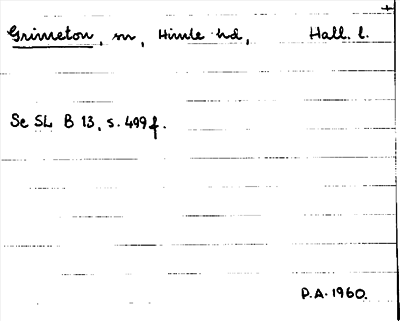 Grimeton, sn, Himle hd, Hall. l.
Se SL B 13, s. 499 f.
P.A. 1960.